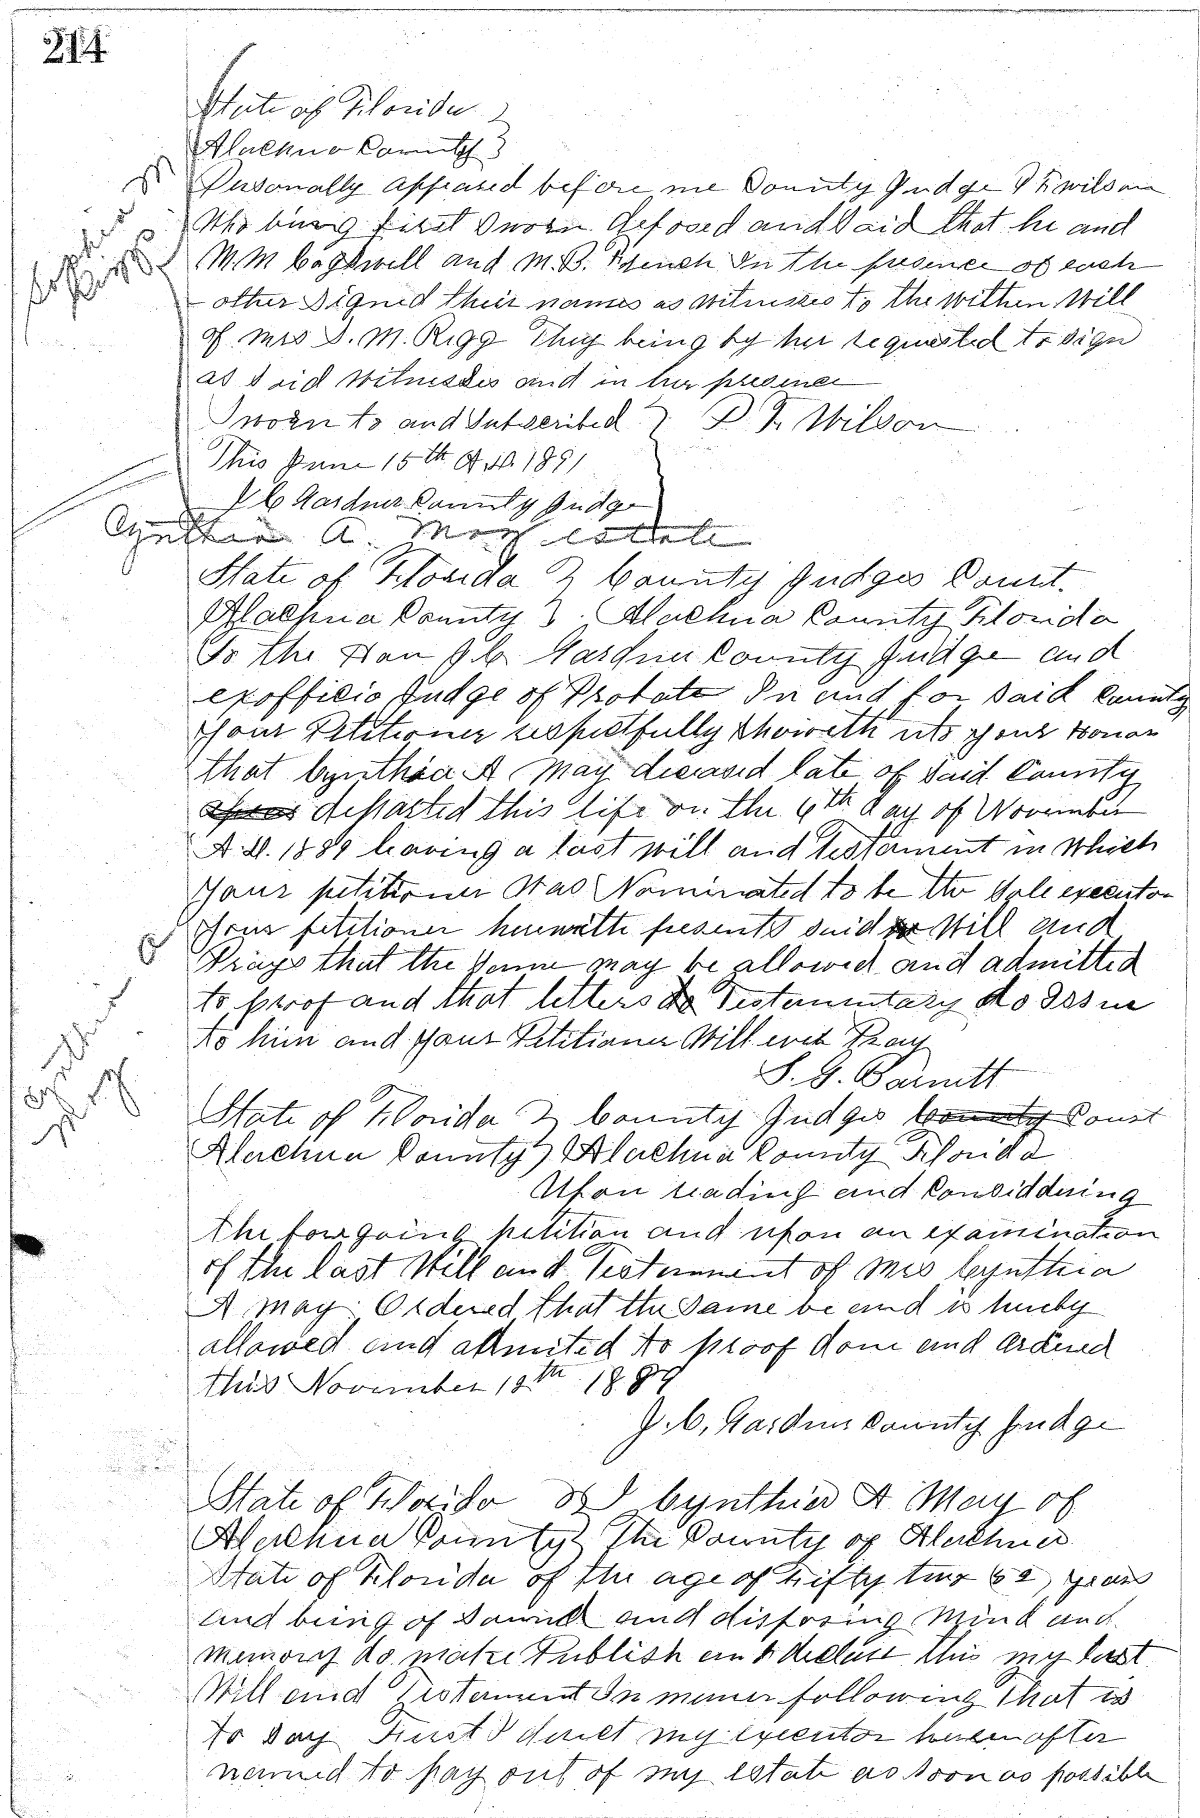 214
State of Florida }
Alachua County }
Personally appeared before me County Judge P F Wilson
Who being first Sworn deposed and Said that he and
W. M Cogswell and M. B. French In the presence of each
other Signed their names as witnesses to the within Will
of Mrs S. M. Rigg They being by her requested to sign
as Said Witnesses and in her presence
Sworn to and Subscribed } P. F. Wilson
This June 15th A.D. 1891
J C Gardner County Judge
Sophia M
Rigg
Cynthia A. May estate
State of Florida } County Judges Court.
Alachua County } Alachua County Florida
To the Hon J. C. Gardner County Judge and
exofficio Judge of Probate In and for Said County
Your Petitioner respectfully Showeth unto your Honor
that Cynthia A May deceased late of Said County
departed this life on the 6th day of November
A.D. 1889 leaving a last will and Testament in which
Your petitioner Was Nominated to be the Sole executor
Your petitioner herewith presents said Will and
Prays that the Same may be allowed and admitted
to proof and that letters Testamentary do Issue
to him and your Petitioner Will ever Pray
S. G. Barnett
Cynthia A
May
State of Florida } County Judges County Court
Alachua County } Alachua County Florida
Upon reading and Considdering
the foregoing petition and upon an examination
of the last Will and Testamment of Mrs Cynthia
A May. Ordered that the Same be and is hereby
allowed and admited to proof done and ordered
this November 12th 1889
J. C. Gardner County Judge
State of Florida I Cynthia A. May of
Alachua County } The County of Alachua
State of Florida of the age of Fifty two 52) years
and being of Sound and disposing Mind and
memory do make Publish and declare this my last
Will and Testament In maner following That is
to Say First I direct my executor hereinafter
named to pay out of my estate as soon as possible